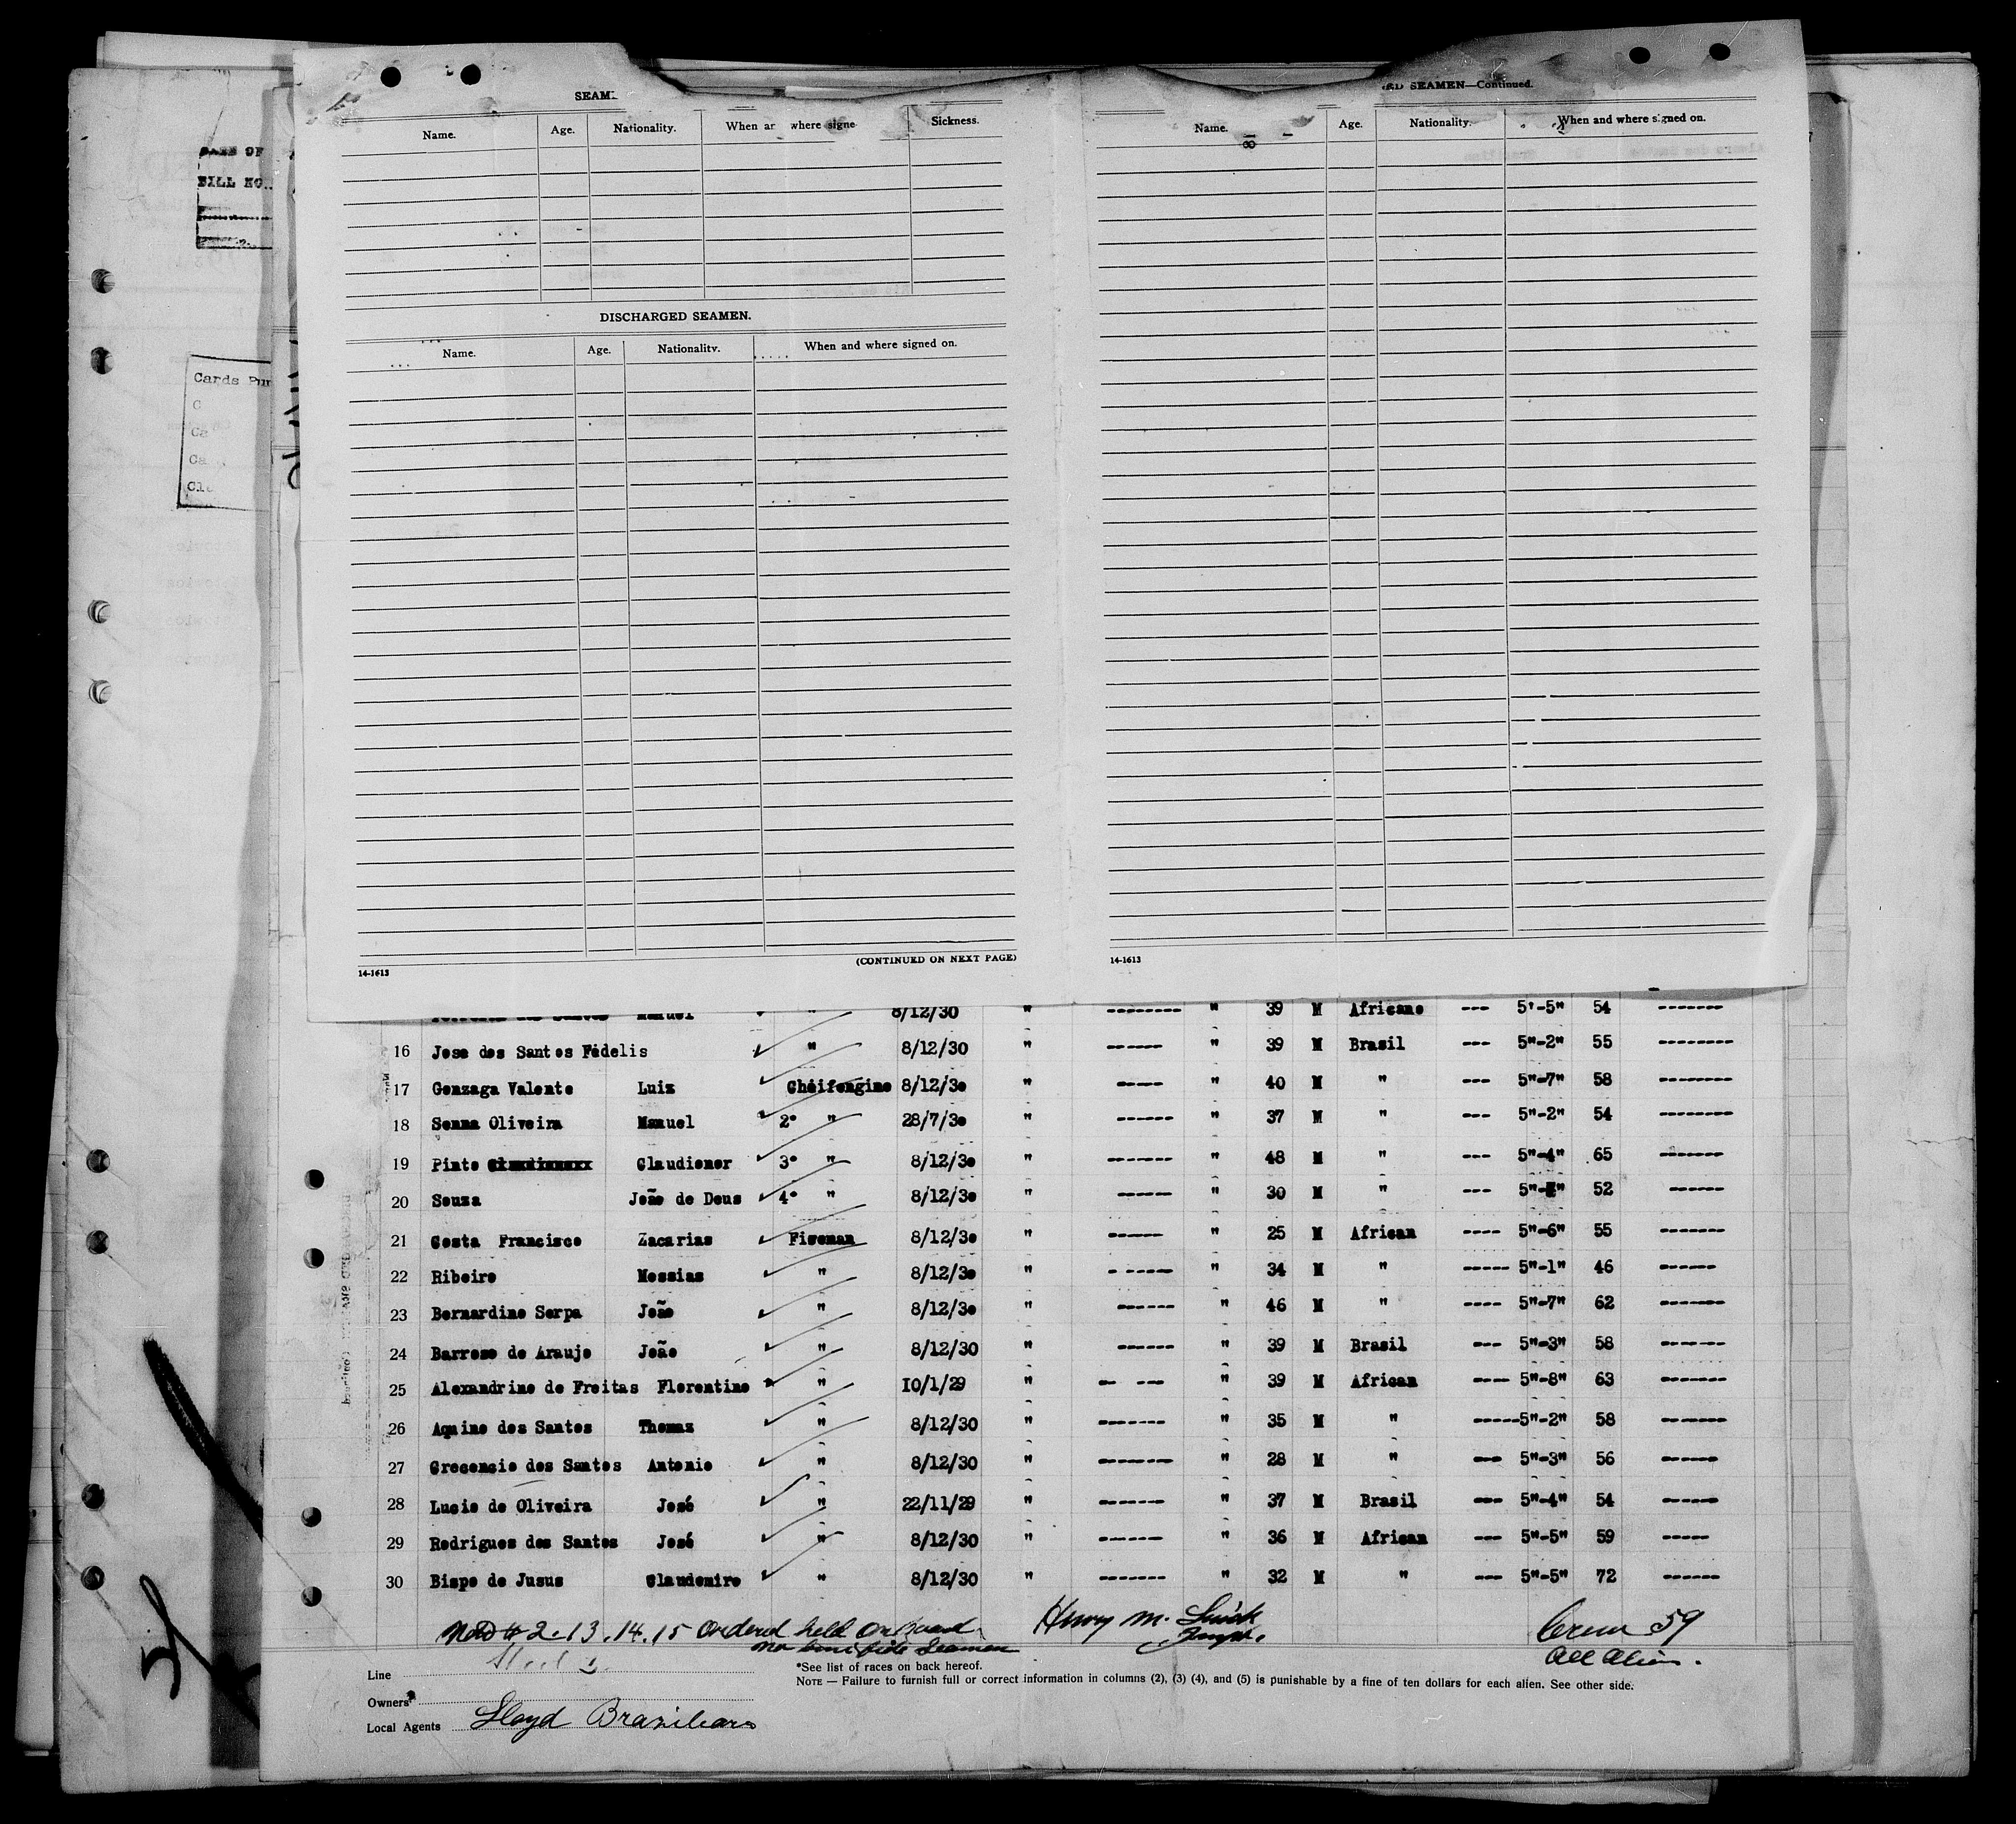 SEAM
Name. Age. Nationality. When ar where signe Sickness.
DISCHARGED SEAMEN.
Name. Age. Nationality. When and where signed on.
14-1613 (CONTINUED ON NEXT PAGE)
ED SEAMEN—Continued.
Name. Age. Nationality. When and where signed on.
14-1613
OF
BILL NO.
Cards Pun
C
Ca
Ca
Cle
Manuel " 8/12/30 " -------- " 39 M Africano --- 5'-5" 54 -------
16 Jose dos Santos Fidelis " 8/12/30 " ------ " 39 M Brasil --- 5"-2" 55 --------
17 Gonzaga Valente Luiz Cheifengine 8/12/30 " ----- " 40 M " --- 5"-7" 58 --------
18 Senna Oliveira Manuel 2° " 28/7/30 " ------ " 37 M " --- 5"-2" 54 --------
19 Pinto Claudiomer 3° " 8/12/30 " ------- " 48 M " --- 5"-4" 65 -------
20 Souza João de Deus 4° " 8/12/30 " ------ " 30 M " --- 5"- " 52 ------
21 Costa Francisco Zacarias Fireman 8/12/30 " ------ " 25 M African ---- 5"-6" 55 ------
22 Ribeiro Messias " 8/12/30 " - ----- " 34 M " ----- 5"-1" 46 ------
23 Bernardino Serpa João " 8/12/30 " ------ " 46 M " ---- 5"-7" 62 -------
24 Barroso de Araujo João " 8/12/30 " ------ " 39 M Brasil --- 5"-3" 58 -------
25 Alexandrino de Freitas Florentino " 10/1/29 " - --- " 39 M African ---- 5"-8" 63 -------
26 Aquino dos Santos Thomaz " 8/12/30 " ------- " 35 M " -----5"-2" 58 -------
27 Crecencio dos Santos Antonio " 8/12/30 " -------- " 28 M " --- 5"-3" 56 ------
28 Lucio de Oliveira José " 22/11/29 " ------- " 37 M Brasil --- 5"-4" 54 ------
29 Rodrigues dos Santos José " 8/12/30 " ------- " 36 M African --- 5"-5" 59 -----
30 Bispo de Jusus Claudemiro " 8/12/30 " ------- " 32 M " --- 5"-5" 72 ------
2.13.14.15 Ordered held on board Henry M. Crew 59
bonifide Seamen Insp. All Aliens.
Line
*See list of races on back hereof.
NOTE — Failure to furnish full or correct information in columns (2), (3) (4), and (5) is punishable by a fine of ten dollars for each alien. See other side.
Owners
Local Agents Lloyd Braziliaro